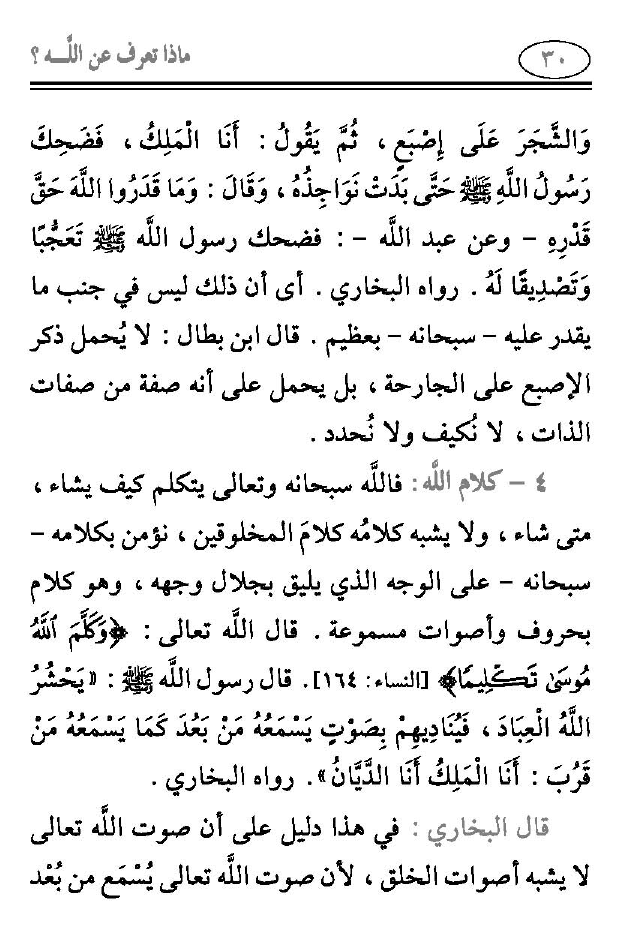 ٣٠
ماذا تعرف عن اللَّـه ؟
وَالشَّجَرَ عَلَى إِصْبَعٍ ، ثُمَّ يَقُولُ : أَنَا الْمَلِكُ ، فَضَحِكَ
رَسُولُ اللَّهِ ﷺ حَتَّى بَدَتْ نَوَاجِذُهُ ، وَقَالَ : وَمَا قَدَرُوا اللَّهَ حَقَّ
قَدْرِهِ - وعن عبد اللَّه - : فضحك رسول اللَّه ﷺ تَعَجُّبًا
وَتَصْدِيقًا لَهُ . رواه البخاري . أى أن ذلك ليس في جنب ما
يقدر عليه - سبحانه - بعظيم . قال ابن بطال : لا يُحمل ذكر
الإصبع على الجارحة ، بل يحمل على أنه صفة من صفات
الذات ، لا نُكيف ولا نُحدد .
٤ - كلام اللَّه : فاللَّه سبحانه وتعالى يتكلم كيف يشاء ،
متى شاء ، ولا يشبه كلامُه كلامَ المخلوقين ، نؤمن بكلامه -
سبحانه - على الوجه الذي يليق بجلال وجهه ، وهو كلام
بحروف وأصوات مسموعة . قال اللَّه تعالى : ﴿وَكَلَّمَ ٱللَّهُ
مُوسَىٰ تَكْلِيمًا﴾ [النساء : ١٦٤] . قال رسول اللَّه ﷺ : « يَحْشُرُ
اللَّهُ الْعِبَادَ ، فَيُنَادِيهِمْ بِصَوْتٍ يَسْمَعُهُ مَنْ بَعُدَ كَمَا يَسْمَعُهُ مَنْ
قَرُبَ : أَنَا الْمَلِكُ أَنَا الدَّيَّانُ » . رواه البخاري .
قال البخاري : في هذا دليل على أن صوت اللَّه تعالى
لا يشبه أصوات الخلق ، لأن صوت اللَّه تعالى يُسْمَع من بُعْد